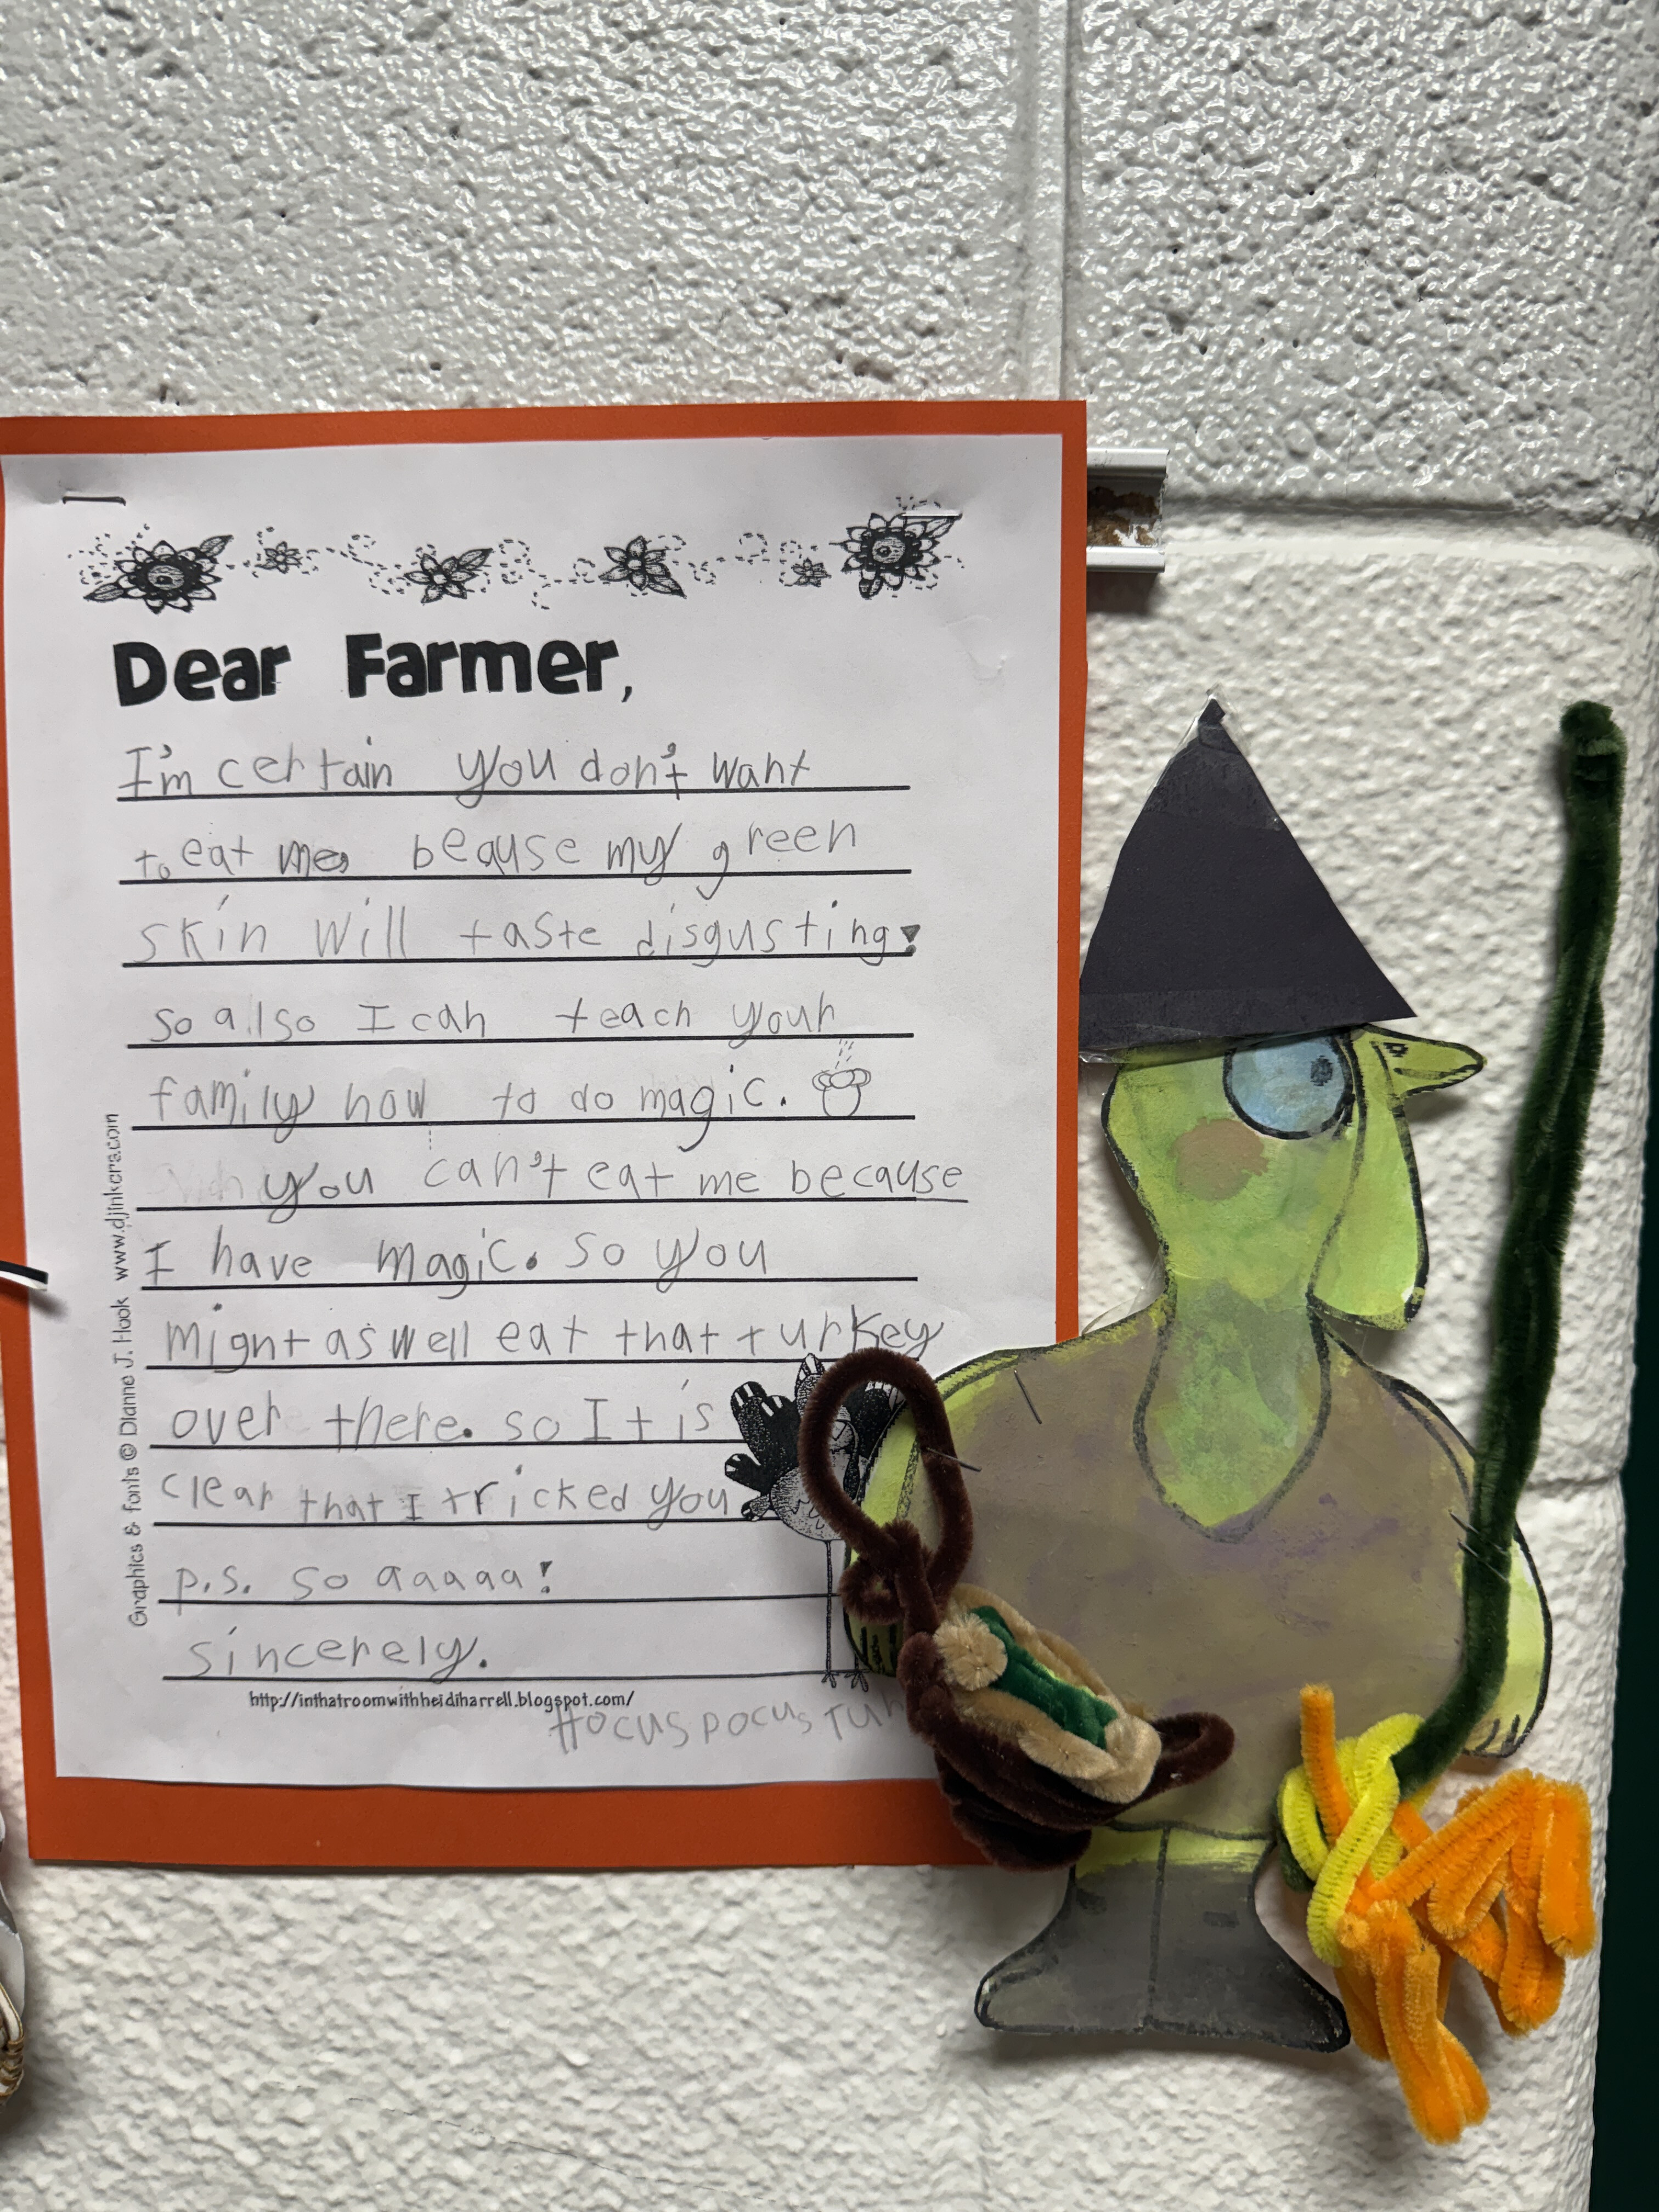 Dear Farmer,
I'm certain you don't want
to eat me, beause my green
skin will taste disgusting.
so also I can teach your
family how to do magic.
you can't eat me because
I have magic. so you
might as well eat that turkey
over there. so It is
clear that I tricked you
p.s. so aaaaa!
sincerely.
http://inthatroomwithheidiharrell.blogspot.com/
Hocus pocus
Graphics & fonts © Dianne J. Hook www.djinkers.com